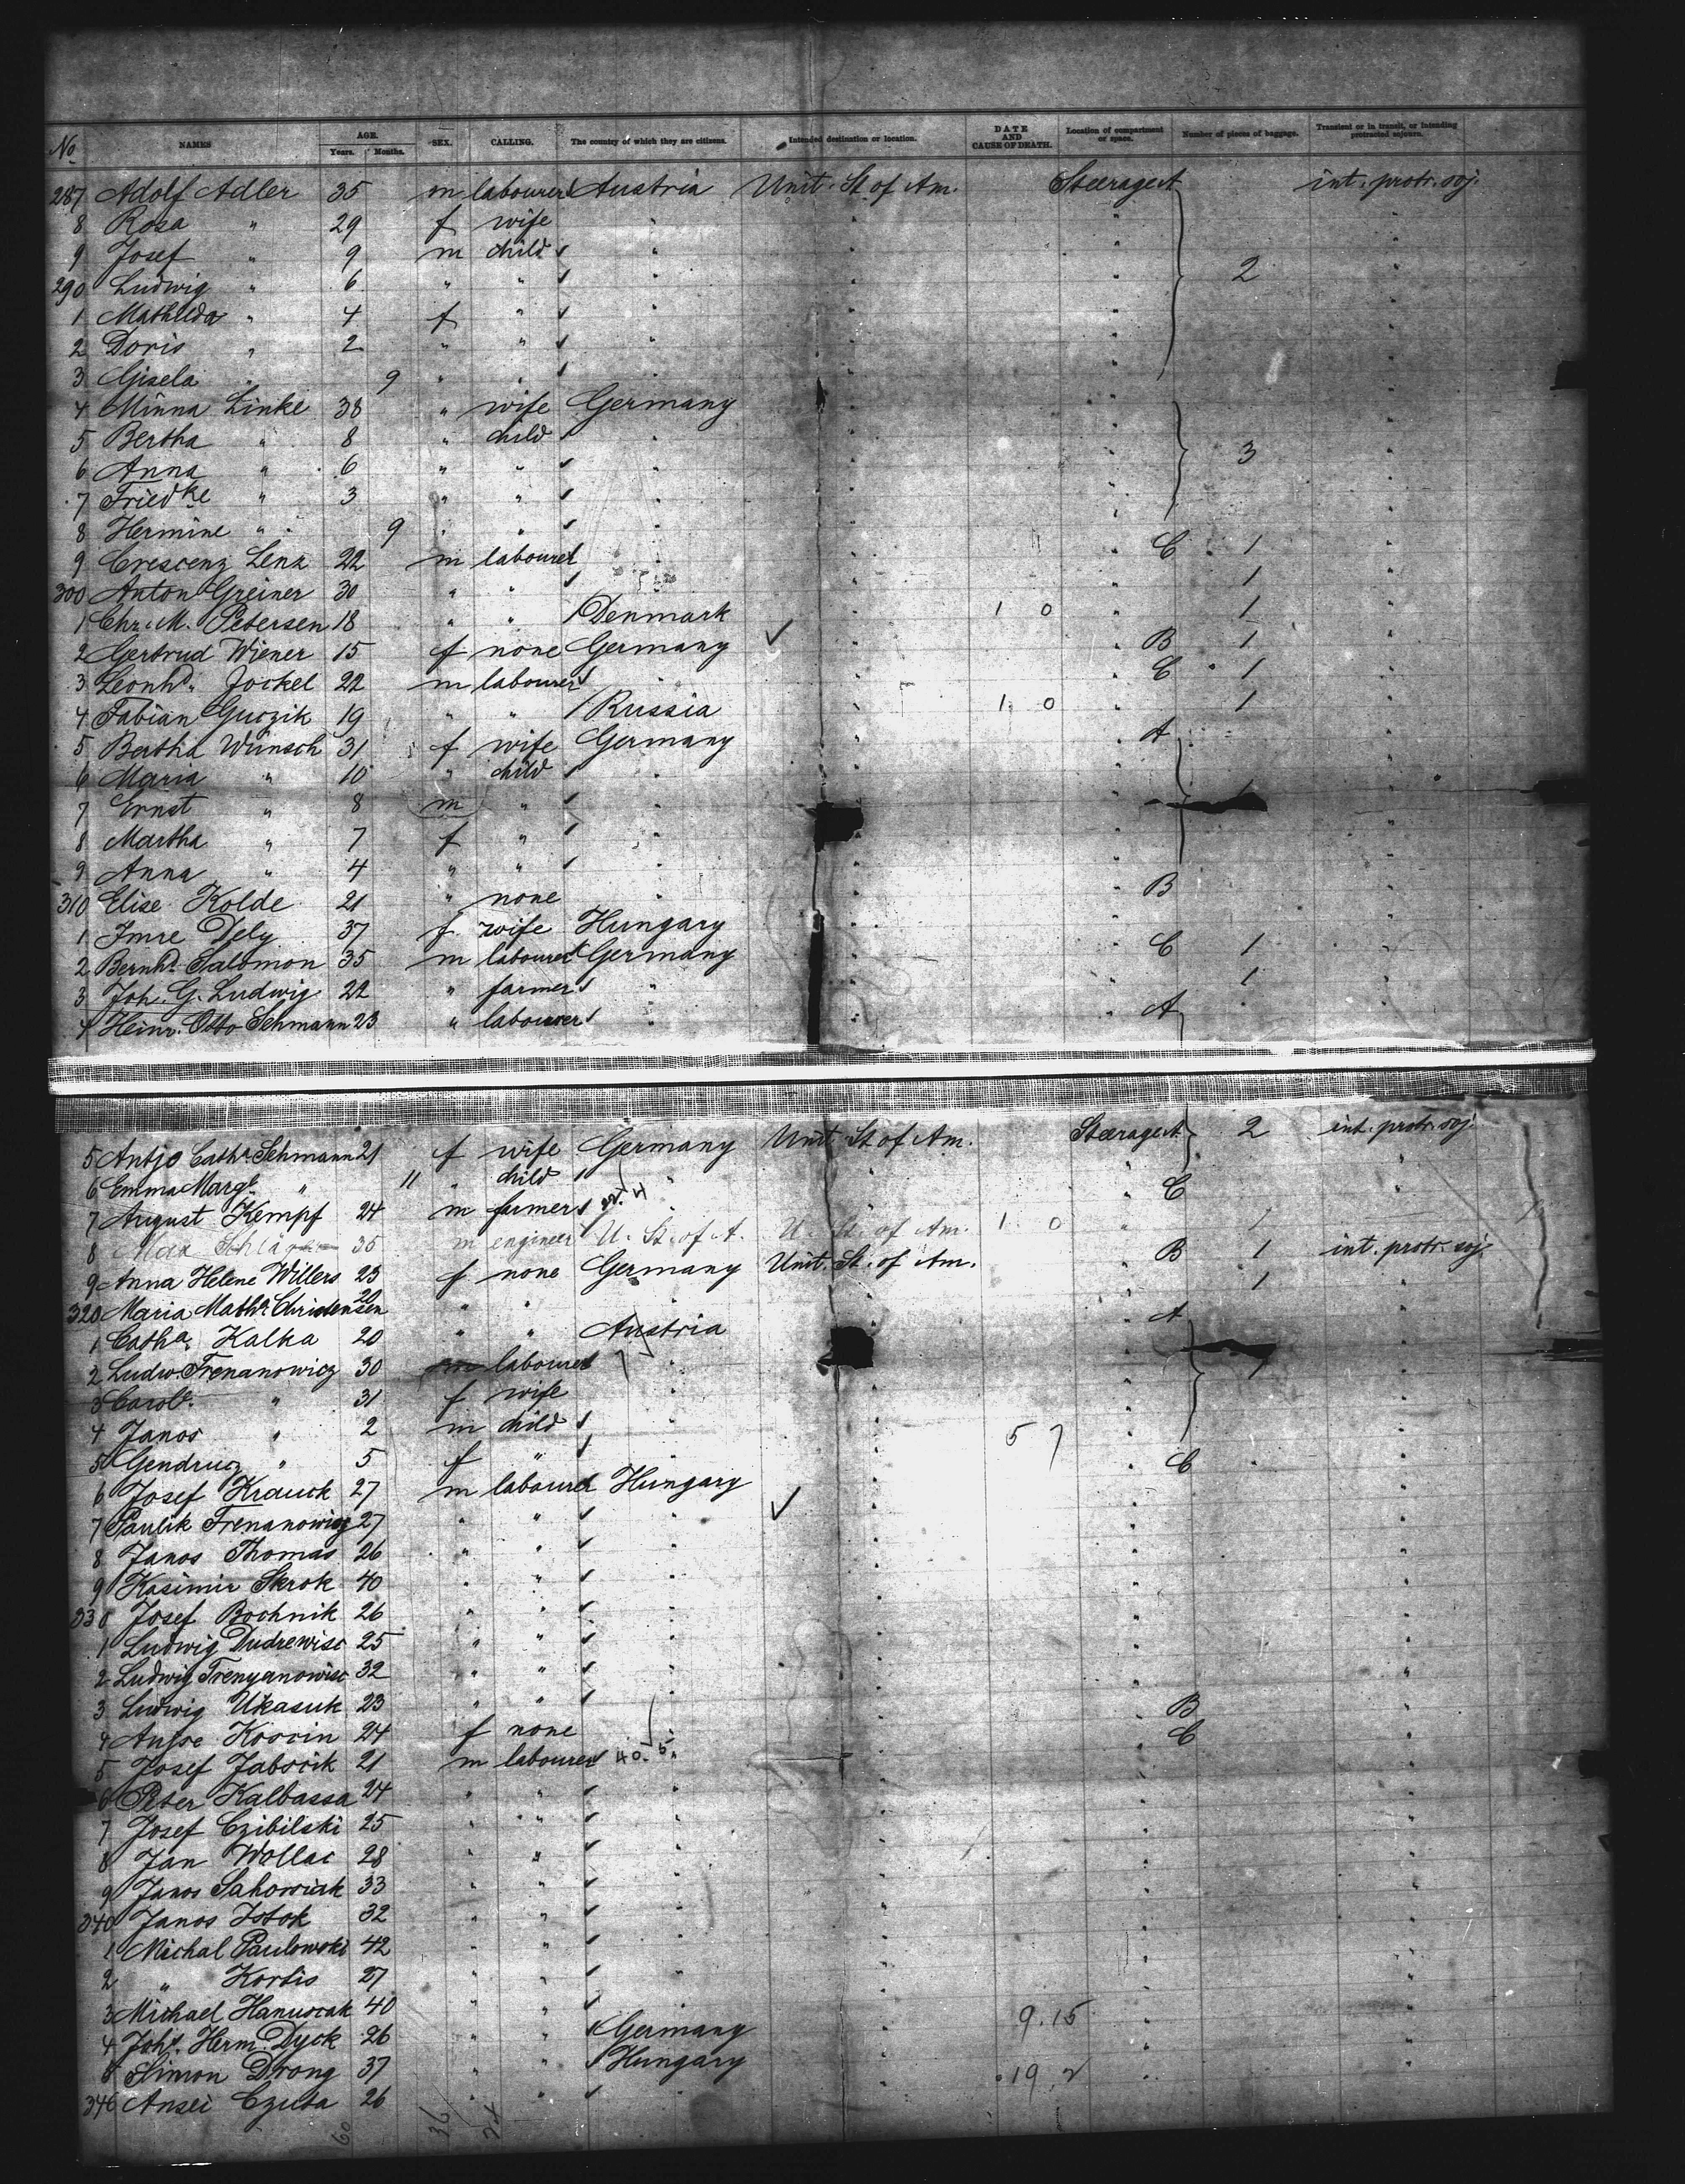 No NAMES AGE. Years. Months. SEX. CALLING. The country of which they are citizens. Intended destination or location. DATE AND CAUSE OF DEATH. Location of compartment or space. Number of pieces of baggage. Transient or in transit, or intending protracted sojourn.
287 Adolf Adler 35 m labourer Austria Unit. St of Am. Steerage A int. protr. soj.
8 Rosa " 29 f wife " " " "
9 Josef " 9 m child " " " "
290 Ludwig " 6 " " " " " 2 "
1 Mathilda " 4 f " " " " "
2 Doris " 2 " " " " " "
3 Gisela " 9 " " " " " "
4 Minna Linke 38 " wife Germany " " "
5 Bertha " 8 " child " " " "
6 Anna " 6 " " " " " 3 "
7 Friedke " 3 " " " " " "
8 Hermine " 9 " " " " " "
9 Crescenz Lenz 22 m labourer " " C 1 "
300 Anton Greiner 30 " " " " 1 "
1 Chr. M. Petersen 18 " " Denmark " 1 0 " 1 "
2 Gertrud Wiener 15 f none Germany " " B 1 "
3 Leonhd. Jockel 22 m labourer " " " C 1 "
4 Fabian Guczik 19 " " Russia " 1 0 " 1 "
5 Bertha Wünsch 31 f wife Germany " " A "
6 Maria " 10 " child " " " "
7 Ernst " 8 m " " "
8 Martha " 7 f " " " " "
9 Anna " 4 " " " " " "
310 Elise Kolde 21 " none " " " B "
1 Imre Dely 37 f wife Hungary " " "
2 Bernhd. Salomon 35 m labourer Germany " " C 1 "
3 Joh. G. Ludwig 22 " farmer " " " 1 "
4 Heinr. Otto Sehmann 23 " labourer " " " A "
5 Antje Cathr. Sehmann 21 f wife Germany Unit. St of Am. Steerage A 2 int. protr. soj.
6 Emma Margt. " 11 " child " " " "
7 August Kempf 24 m farmer " " C "
8 Max 35 m engineer U. St. of A. U. St. of Am. 1 0 " 1
9 Anna Helene Willers 23 f none Germany Unit. St. of Am. " B 1 int. protr. soj.
320 Maria Mathe. Christensen 20 " " " " " 1 "
1 Catha. Kalka 20 " " Austria " " A "
2 Ludw. Trenanowicz 30 m labourer " " " 1 "
3 Carole. " 31 f wife " " " "
4 Janos " 2 m child " " 5 7 " "
5 Gendrucz " 5 f " " " C "
6 Josef Krauck 27 m labourer Hungary " " "
7 Paulik Trenanowicz 27 " " " " " "
8 Janos Thomas 26 " " " " " "
9 Kasimir Skrok 40 " " " " " "
330 Josef Bochnik 26 " " " " " "
1 Ludwig Dudrewisc 25 " " " " " "
2 Ludwig Trenyanowisc 32 " " " " " "
3 Ludwig Ukasuk 23 " " " " " B "
4 Koscin 24 f none " " C "
5 Josef Jabscik 21 m labourer 40. 5. " " "
6 Peter Kalbassa 24 " " " " " "
7 Josef Czibilski 25 " " " " " "
8 Jan Wollac 28 " " " " " "
9 Janos 33 " " " " " "
340 Janos Istok 32 " " " " " "
1 Michal Paulowski 42 " " " " " "
2 " Kortis 27 " " " " " "
3 Michael Hanuscak 40 " " " " 9.15 " "
4 Johs. Herm. Dyck 26 " " Germany " " "
5 Simon Drong 37 " " Hungary " 19.2 " "
346 Ansei Czuta 26 " " " " " "
60 36 24